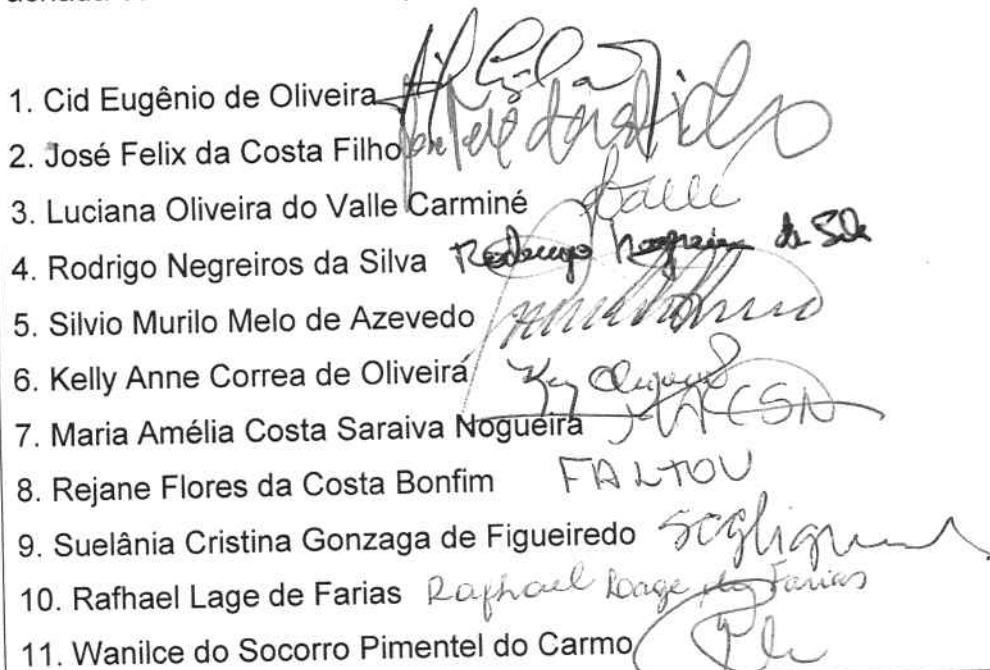 1. Cid Eugênio de Oliveira
2. José Felix da Costa Filho
3. Luciana Oliveira do Valle Carminé
4. Rodrigo Negreiros da Silva Rodrigo Negreiros da Silva
5. Silvio Murilo Melo de Azevedo
6. Kelly Anne Correa de Oliveira
7. Maria Amélia Costa Saraiva Nogueira
8. Rejane Flores da Costa Bonfim FALTOU
9. Suelânia Cristina Gonzaga de Figueiredo
10. Rafhael Lage de Farias Rafhael Lage de Farias
11. Wanilce do Socorro Pimentel do Carmo